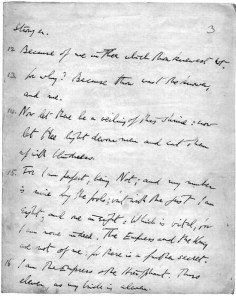 3
stronger.
12. Because of me in Thee which thou knewest not.
13. for why? Because thou wast the knower,
and me.
14. Now let there be a veiling of this shrine: now
let the light devour men and eat them
up with blindness.
15. For I am perfect, being Not; and my number
is nine by the fools; but with the just I am
eight, and one in eight: Which is vital, for
I am none indeed. The Empress and the King
are not of me; for there is a further secret.
16. I am the Empress & the Hierophant. Thus
eleven as my bride is eleven.